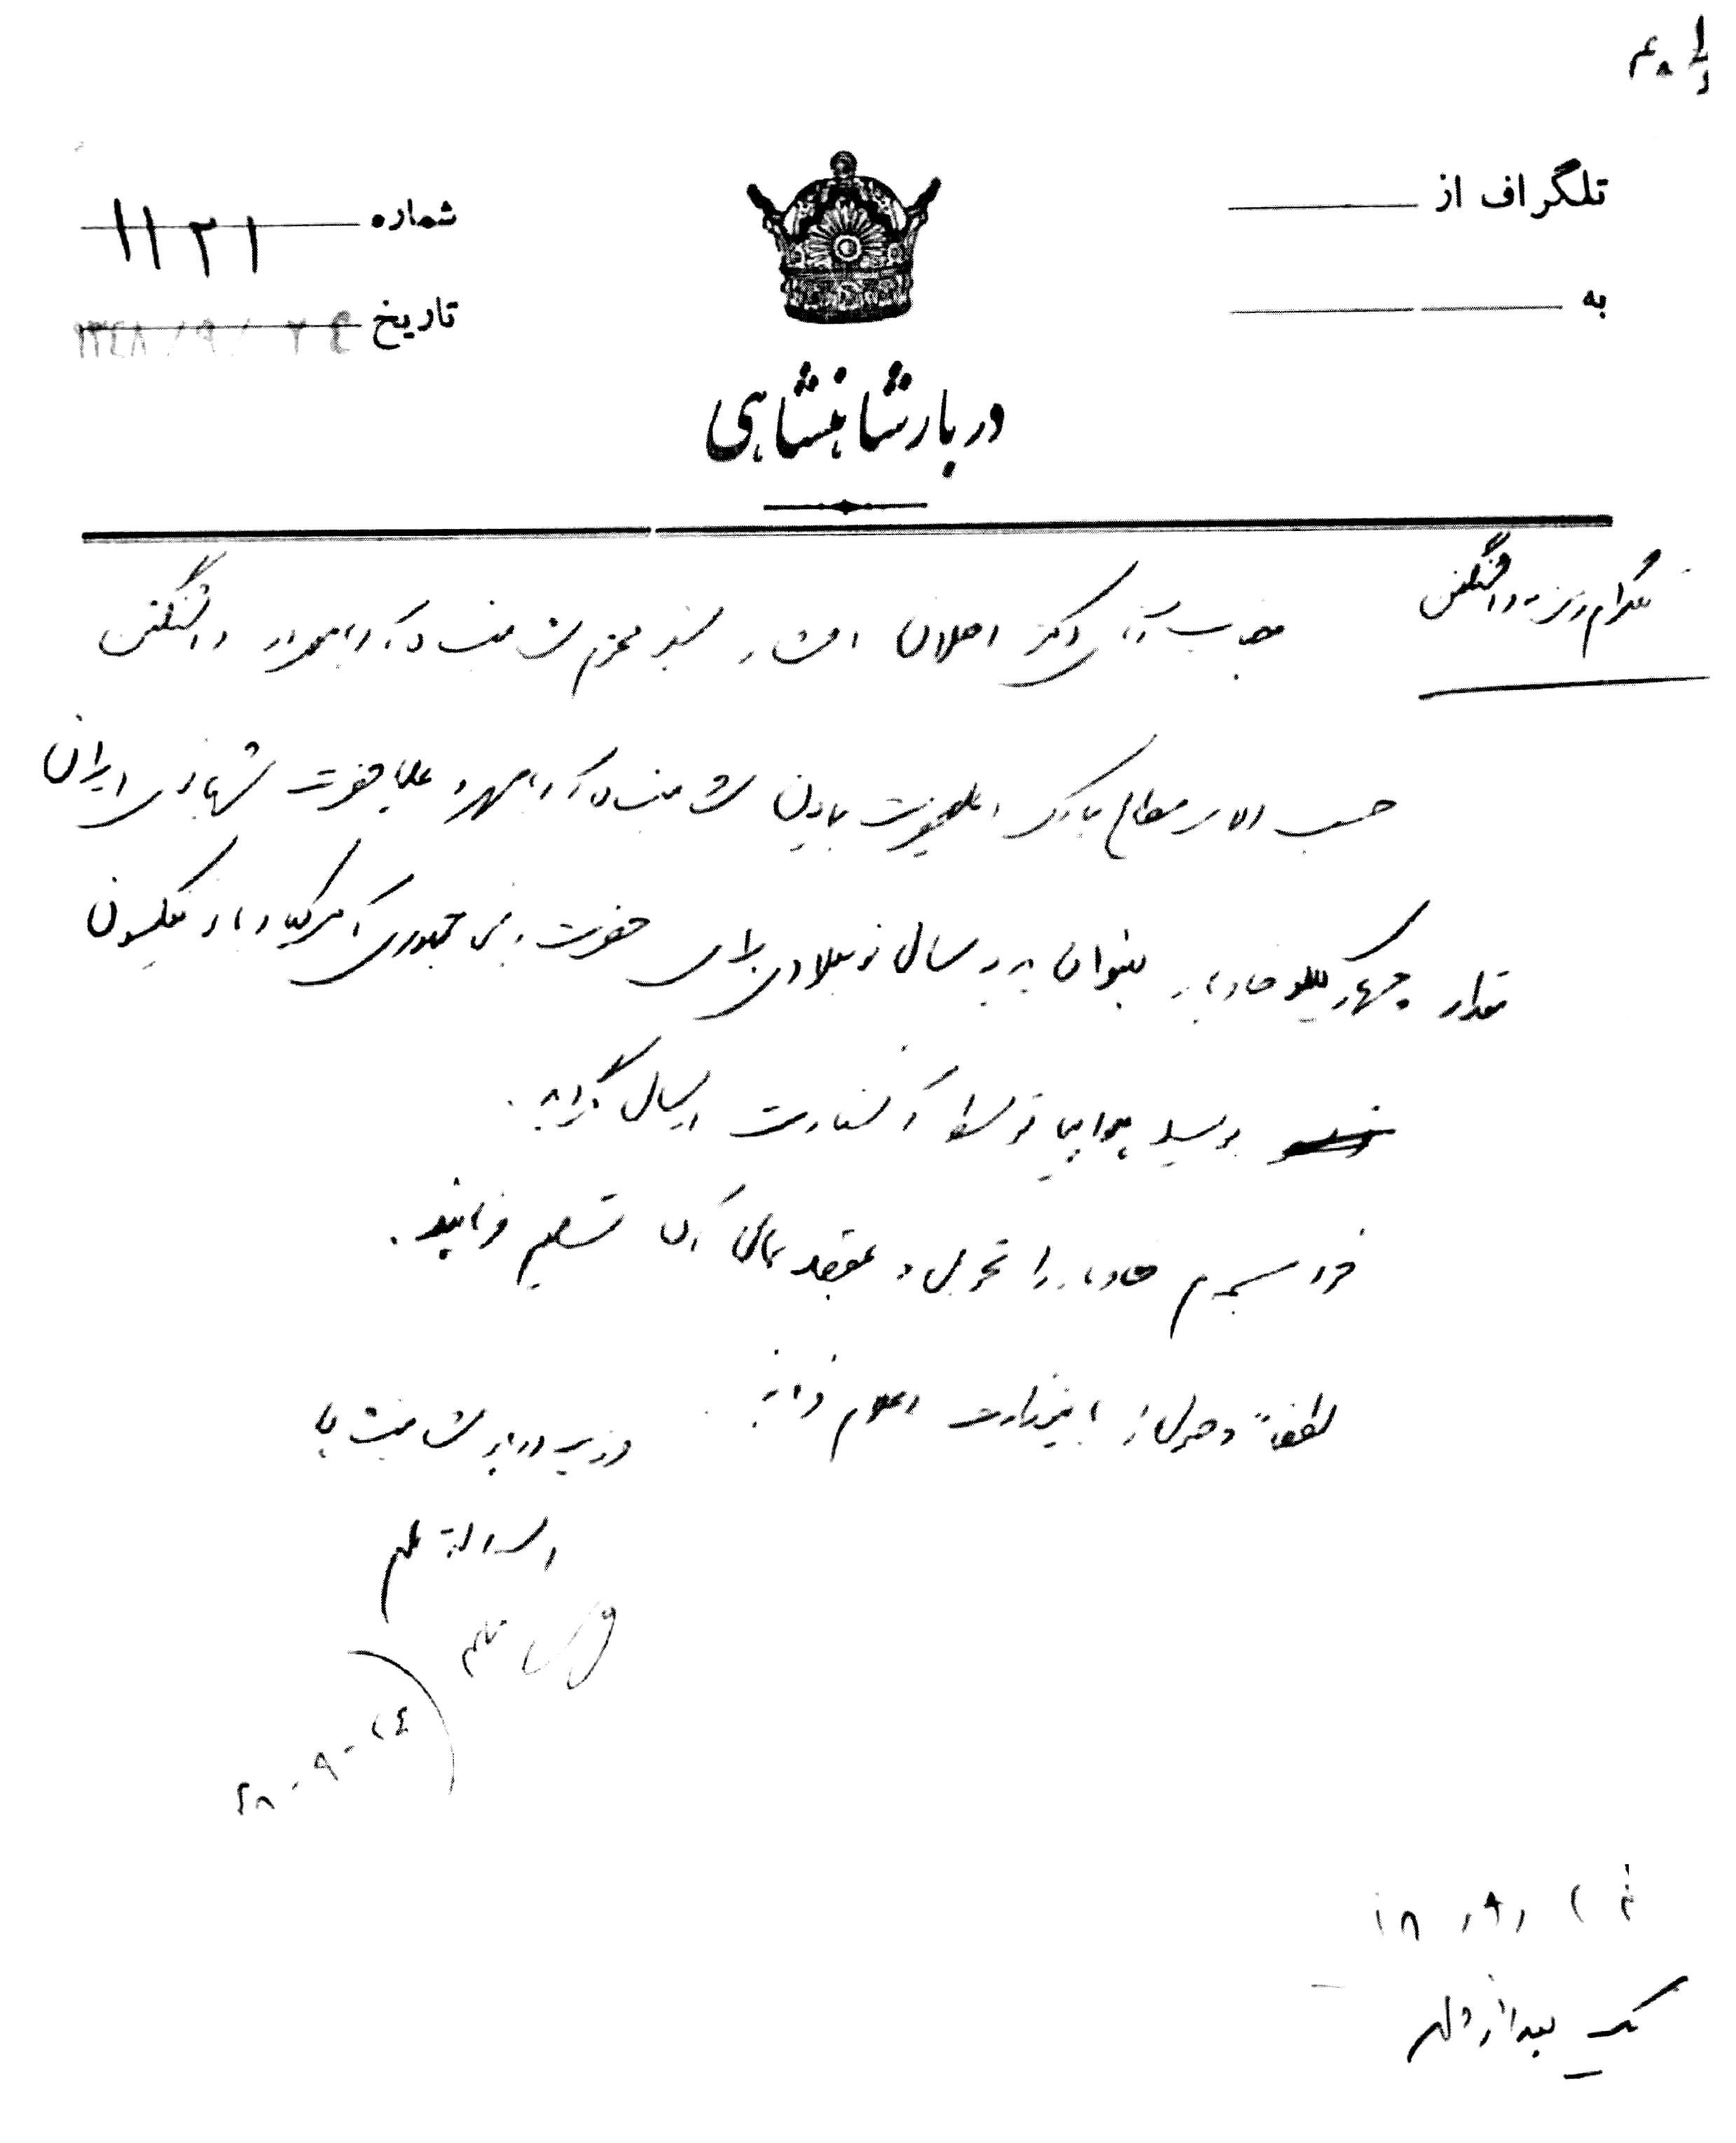 تلگراف از
به
شماره ۱۱۲۱
تاریخ ۱۳۴۸/۹/۲۴
دربار شاهنشاهی
تلگرام رمز به واشنگتن
جناب آقای دکتر اصلان افشار سفیر محترم شاهنشاه آریامهر در واشنگتن
حسب الامر مطاع مبارک اعلیحضرت همایون شاهنشاه آریامهر و علیاحضرت شهبانوی ایران
مقدار چهار کیلو خاویار بعنوان هدیه سال نو میلادی برای حضرت رئیس جمهوری آمریکا و بانو نیکسون
بوسیله هواپیما توسط آن سفارت ارسال گردید.
خاویار را تحویل و بمقصد عالی آن تسلیم فرمایند.
لطفاً وصول را باینوزارت اعلام فرمایند
وزیر دربار شاهنشاهی
اسدالله علم
۴۸-۹-۲۴